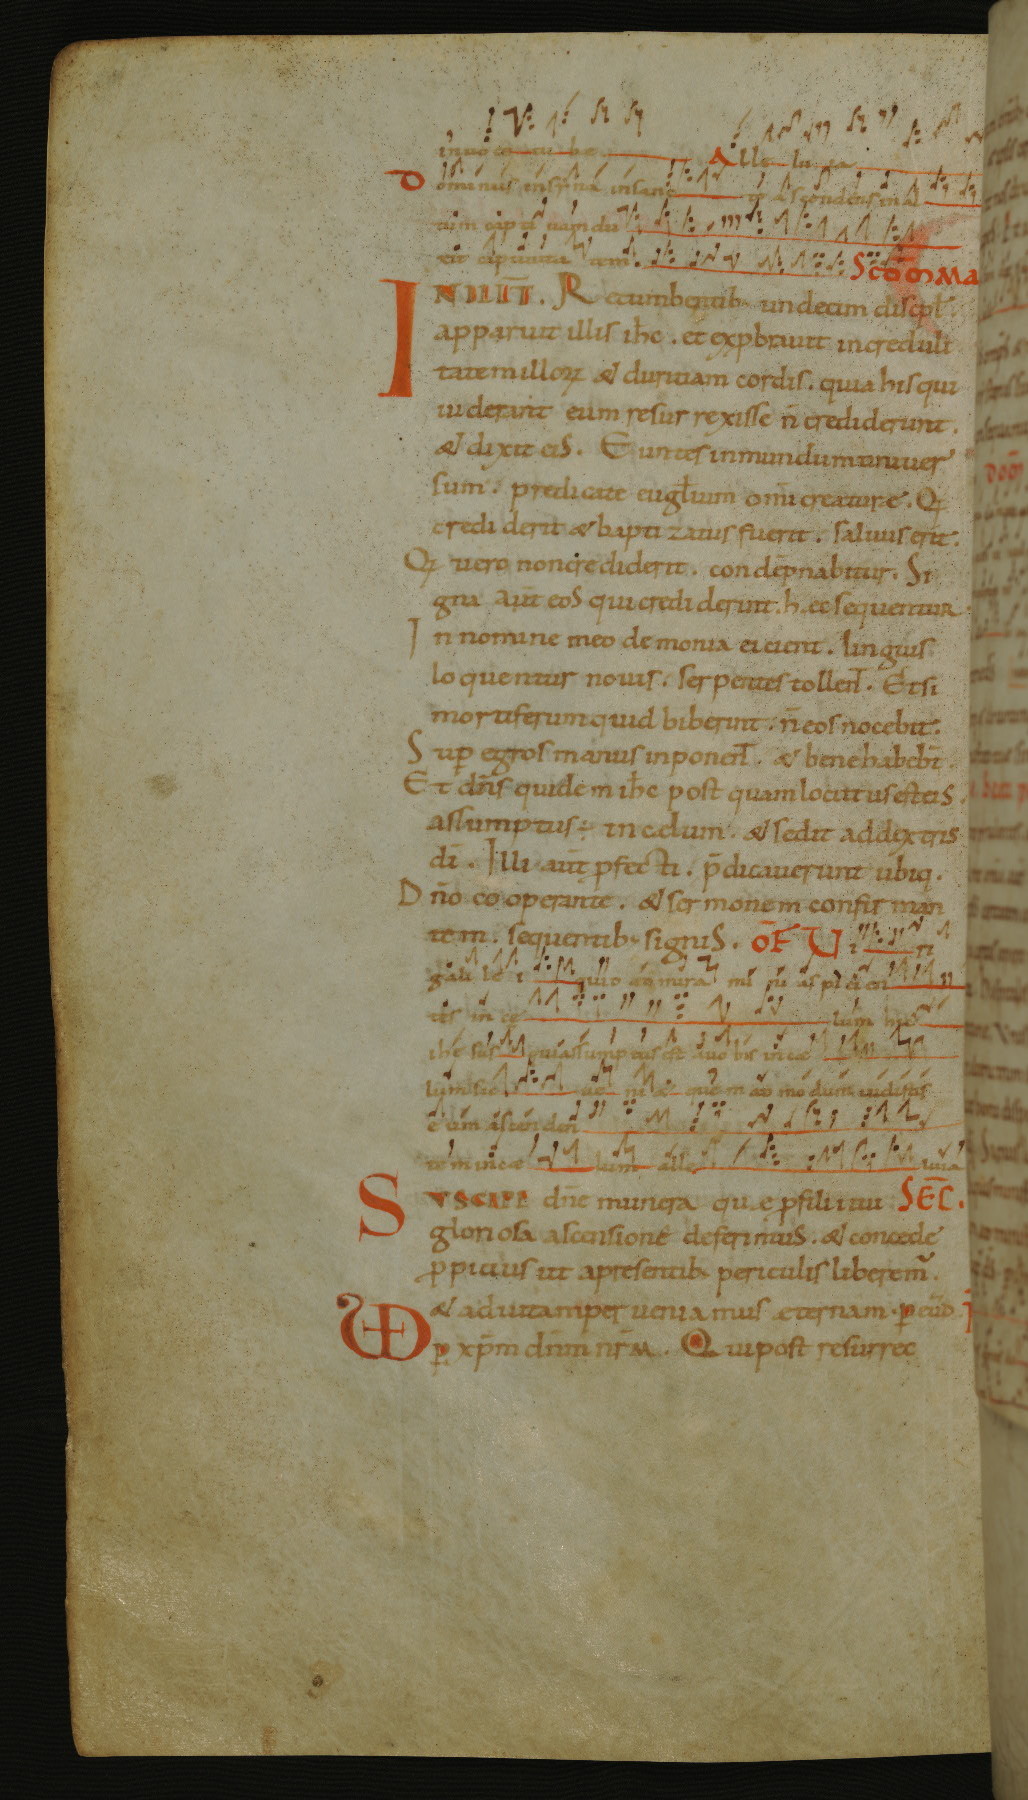 in uo ce tu be Alle lu ia
Dominus insyna in sanc to ascendens in al
tum capti uam du
xit captiuita tem Scdm Ma
IN ILL T. Recumbentib; undecim discipl
apparuit illis ihc. et exprbrauit increduli
tatem illorum & duritiam cordis. quia his qui
uiderant eum resurrexisse n̄ crediderunt.
& dixit eis. Euntes inmundumuniuer
sum. predicate eugl̄ium omi creature. Q
crediderit & baptizatus fuerit. saluus erit.
Q uero noncrediderit. condēpnabitur. Si
gna aūt eos qui crediderint. hec sequentur
In nomine meo demonia eicient. linguis
loquentur nouis. serpentes tollent̄. Etsi
mortiferumquid biberint. n̄ eos nocebit.
Sup egros manus inponent̄. & bene habebt̄.
Et dn̄s quidem ihc postquam locutus est eis.
assumptus ÷ in celum. & sedit addextris
dī. Illi aūt pfecti. p̄dicauerunt ubiq.
Dn̄o cooperante. & sermonem confirman
tem. sequentib; signis. OF Ui ri
gali le i quid ammira mi ni as pi ci en
tes in ce lum hic
ihc sus qui assumptus est auo bis in ce
lum sic ue ni & quem ad modum uidistis
e um ascen den
tem in ce lum alle luia
Suscipe dn̄e munera que p filii tui SEC.
gloriosa ascensione deferimus. & concede
ppicius ut apresentib; periculis liberem̄.
& aduitamperueniamus eternam. p eūd
VD p xp̄m dn̄m nr̄m. Qui post resurrec